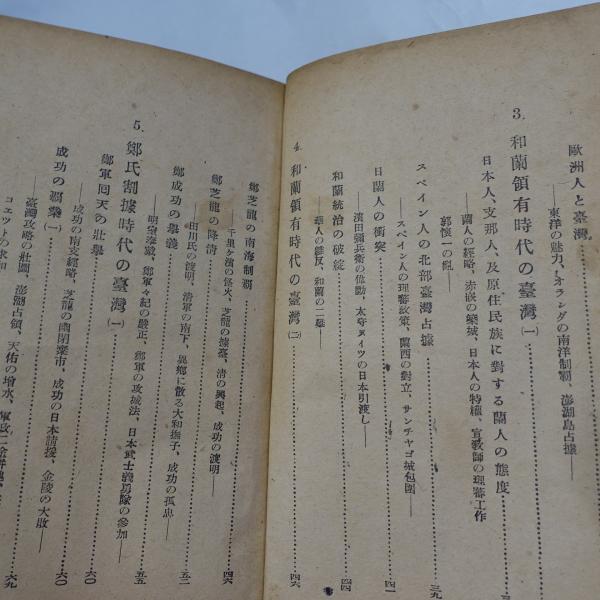 歐洲人と臺灣
――東洋の魅力、オランダの南洋制覇、澎湖島占據――
3. 和蘭領有時代の臺灣（一）
日本人、支那人、及原住民族に對する蘭人の態度
――蘭人の經略、赤嵌の築城、日本人の特權、宣敎師の理蕃工作
郭懷一の亂――
スペイン人の北部臺灣占據 三九
――スペイン人の理蕃政策、蘭西の對立、サンチヤゴ城包圍――
日蘭人の衝突 四一
――濱田彌兵衞の偉勳、太守ヌイツの日本引渡し――
和蘭統治の破綻 四四
――華人の離反、和蘭の二墓――
4. 和蘭領有時代の臺灣（二） 四六
鄭芝龍の南海制覇
――千里ヶ濱の怪火、芝龍の據臺、淸の興起、成功の渡明――
鄭芝龍の降淸 四六
鄭成功の擧義 五二
――田川氏の渡明、淸軍の南下、異鄕に散る大和撫子、成功の孤忠――
5. 鄭氏割據時代の臺灣（一） 五五
――明室奉戴、鄭軍々紀の嚴正、鄭軍の攻城法、日本武士義勇隊の參加――
鄭軍回天の壯擧 六〇
成功の覇業（一） 六〇
――成功の南支經略、芝龍の幽閉棄市、成功の日本請援、金陵の大敗――
――臺灣攻略の壯圖、澎湖占領、天佑の增水、軍政二
コエットの求和 六九